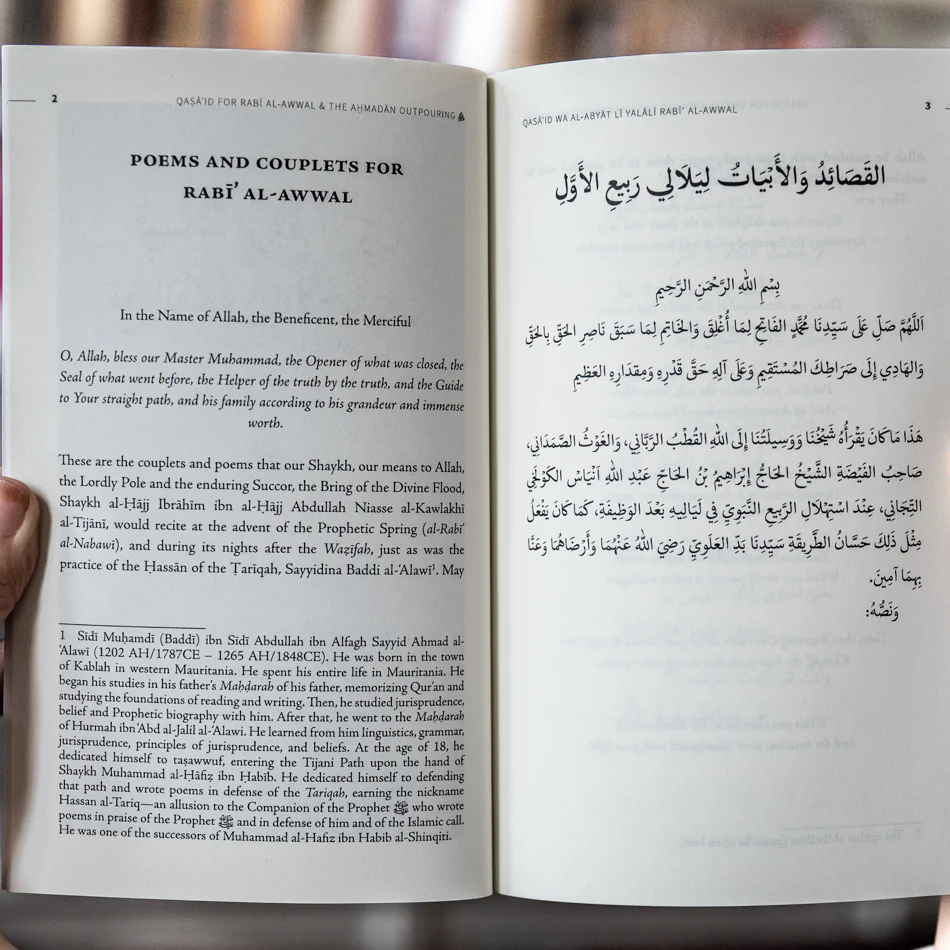 2
QAṢĀ'ID FOR RABĪ AL-AWWAL & THE AḤMADĀN OUTPOURING
POEMS AND COUPLETS FOR
RABĪʾ AL-AWWAL
In the Name of Allah, the Beneficent, the Merciful
O, Allah, bless our Master Muhammad, the Opener of what was closed, the
Seal of what went before, the Helper of the truth by the truth, and the Guide
to Your straight path, and his family according to his grandeur and immense
worth.
These are the couplets and poems that our Shaykh, our means to Allah,
the Lordly Pole and the enduring Succor, the Bring of the Divine Flood,
Shaykh al-Ḥājj Ibrāhīm ibn al-Ḥājj Abdullah Niasse al-Kawlakhī
al-Tijānī, would recite at the advent of the Prophetic Spring (al-Rabīʿ
al-Nabawī), and during its nights after the Waẓīfah, just as was the
practice of the Ḥassān of the Ṭarīqah, Sayyidina Baddi al-ʿAlawī¹. May
1 Sīdī Muḥamdī (Baddī) ibn Sīdī Abdullah ibn Alfagh Sayyid Ahmad al-
ʿAlawī (1202 AH/1787CE – 1265 AH/1848CE). He was born in the town
of Kablah in western Mauritania. He spent his entire life in Mauritania. He
began his studies in his father's Maḥḍarah of his father, memorizing Qur'an and
studying the foundations of reading and writing. Then, he studied jurisprudence,
belief and Prophetic biography with him. After that, he went to the Maḥḍarah
of Hurmah ibn ʿAbd al-Jalil al-ʿAlawi. He learned from him linguistics, grammar,
jurisprudence, principles of jurisprudence, and beliefs. At the age of 18, he
dedicated himself to taṣawwuf, entering the Tijani Path upon the hand of
Shaykh Muhammad al-Ḥāfiẓ ibn Ḥabīb. He dedicated himself to defending
that path and wrote poems in defense of the Tariqah, earning the nickname
Hassan al-Tariq—an allusion to the Companion of the Prophet ﷺ who wrote
poems in praise of the Prophet ﷺ and in defense of him and of the Islamic call.
He was one of the successors of Muhammad al-Hafiz ibn Habib al-Shinqiti.
QAṢĀ'ID WA AL-ABYĀT LĪ YALĀLĪ RABĪʿ AL-AWWAL
3
القَصَائِدُ وَالأَبْيَاتُ لِيَلَالِي رَبِيعِ الأَوَّلِ
بِسْمِ اللهِ الرَّحْمَنِ الرَّحِيمِ
اَللَّهُمَّ صَلِّ عَلَى سَيِّدِنَا مُحَمَّدٍ الفَاتِحِ لِمَا أُغْلِقَ وَالخَاتِمِ لِمَا سَبَقَ نَاصِرِ الحَقِّ بِالحَقِّ
وَالهَادِي إِلَى صَرَاطِكَ المُسْتَقِيمِ وَعَلَى آلِهِ حَقَّ قَدْرِهِ وَمِقدَارِهِ العَظِيمِ
هَذَا مَا كَانَ يَقْرَأُهُ شَيْخُنَا وَوَسِيلَتُنَا إِلَى اللهِ القُطْبُ الرَّبَّانِي، وَالغَوْثُ الصَّمَدَانِي،
صَاحِبُ الفَيْضَةِ الشَّيْخُ الحَاجُّ إِبْرَاهِيمُ بْنُ الحَاجِّ عَبْدِ اللهِ اَنْيَاسْ الكَوْلَخِي
التِّجَانِي، عِنْدَ اسْتِهْلَالِ الرَّبِيعِ النَّبَوِيِّ فِي لَيَالِيهِ بَعْدَ الوَظِيفَةِ، كَمَا كَانَ يَفْعَلُ
مِثْلَ ذَلِكَ حَسَّانُ الطَّرِيقَةِ سَيِّدِنَا بَدِّ العَلَوِيِّ رَضِيَ اللهُ عَنْهُمَا وَأَرْضَاهُمَا وَعَنَّا
بِهِمَا آمِينَ.
وَنَصُّهُ: